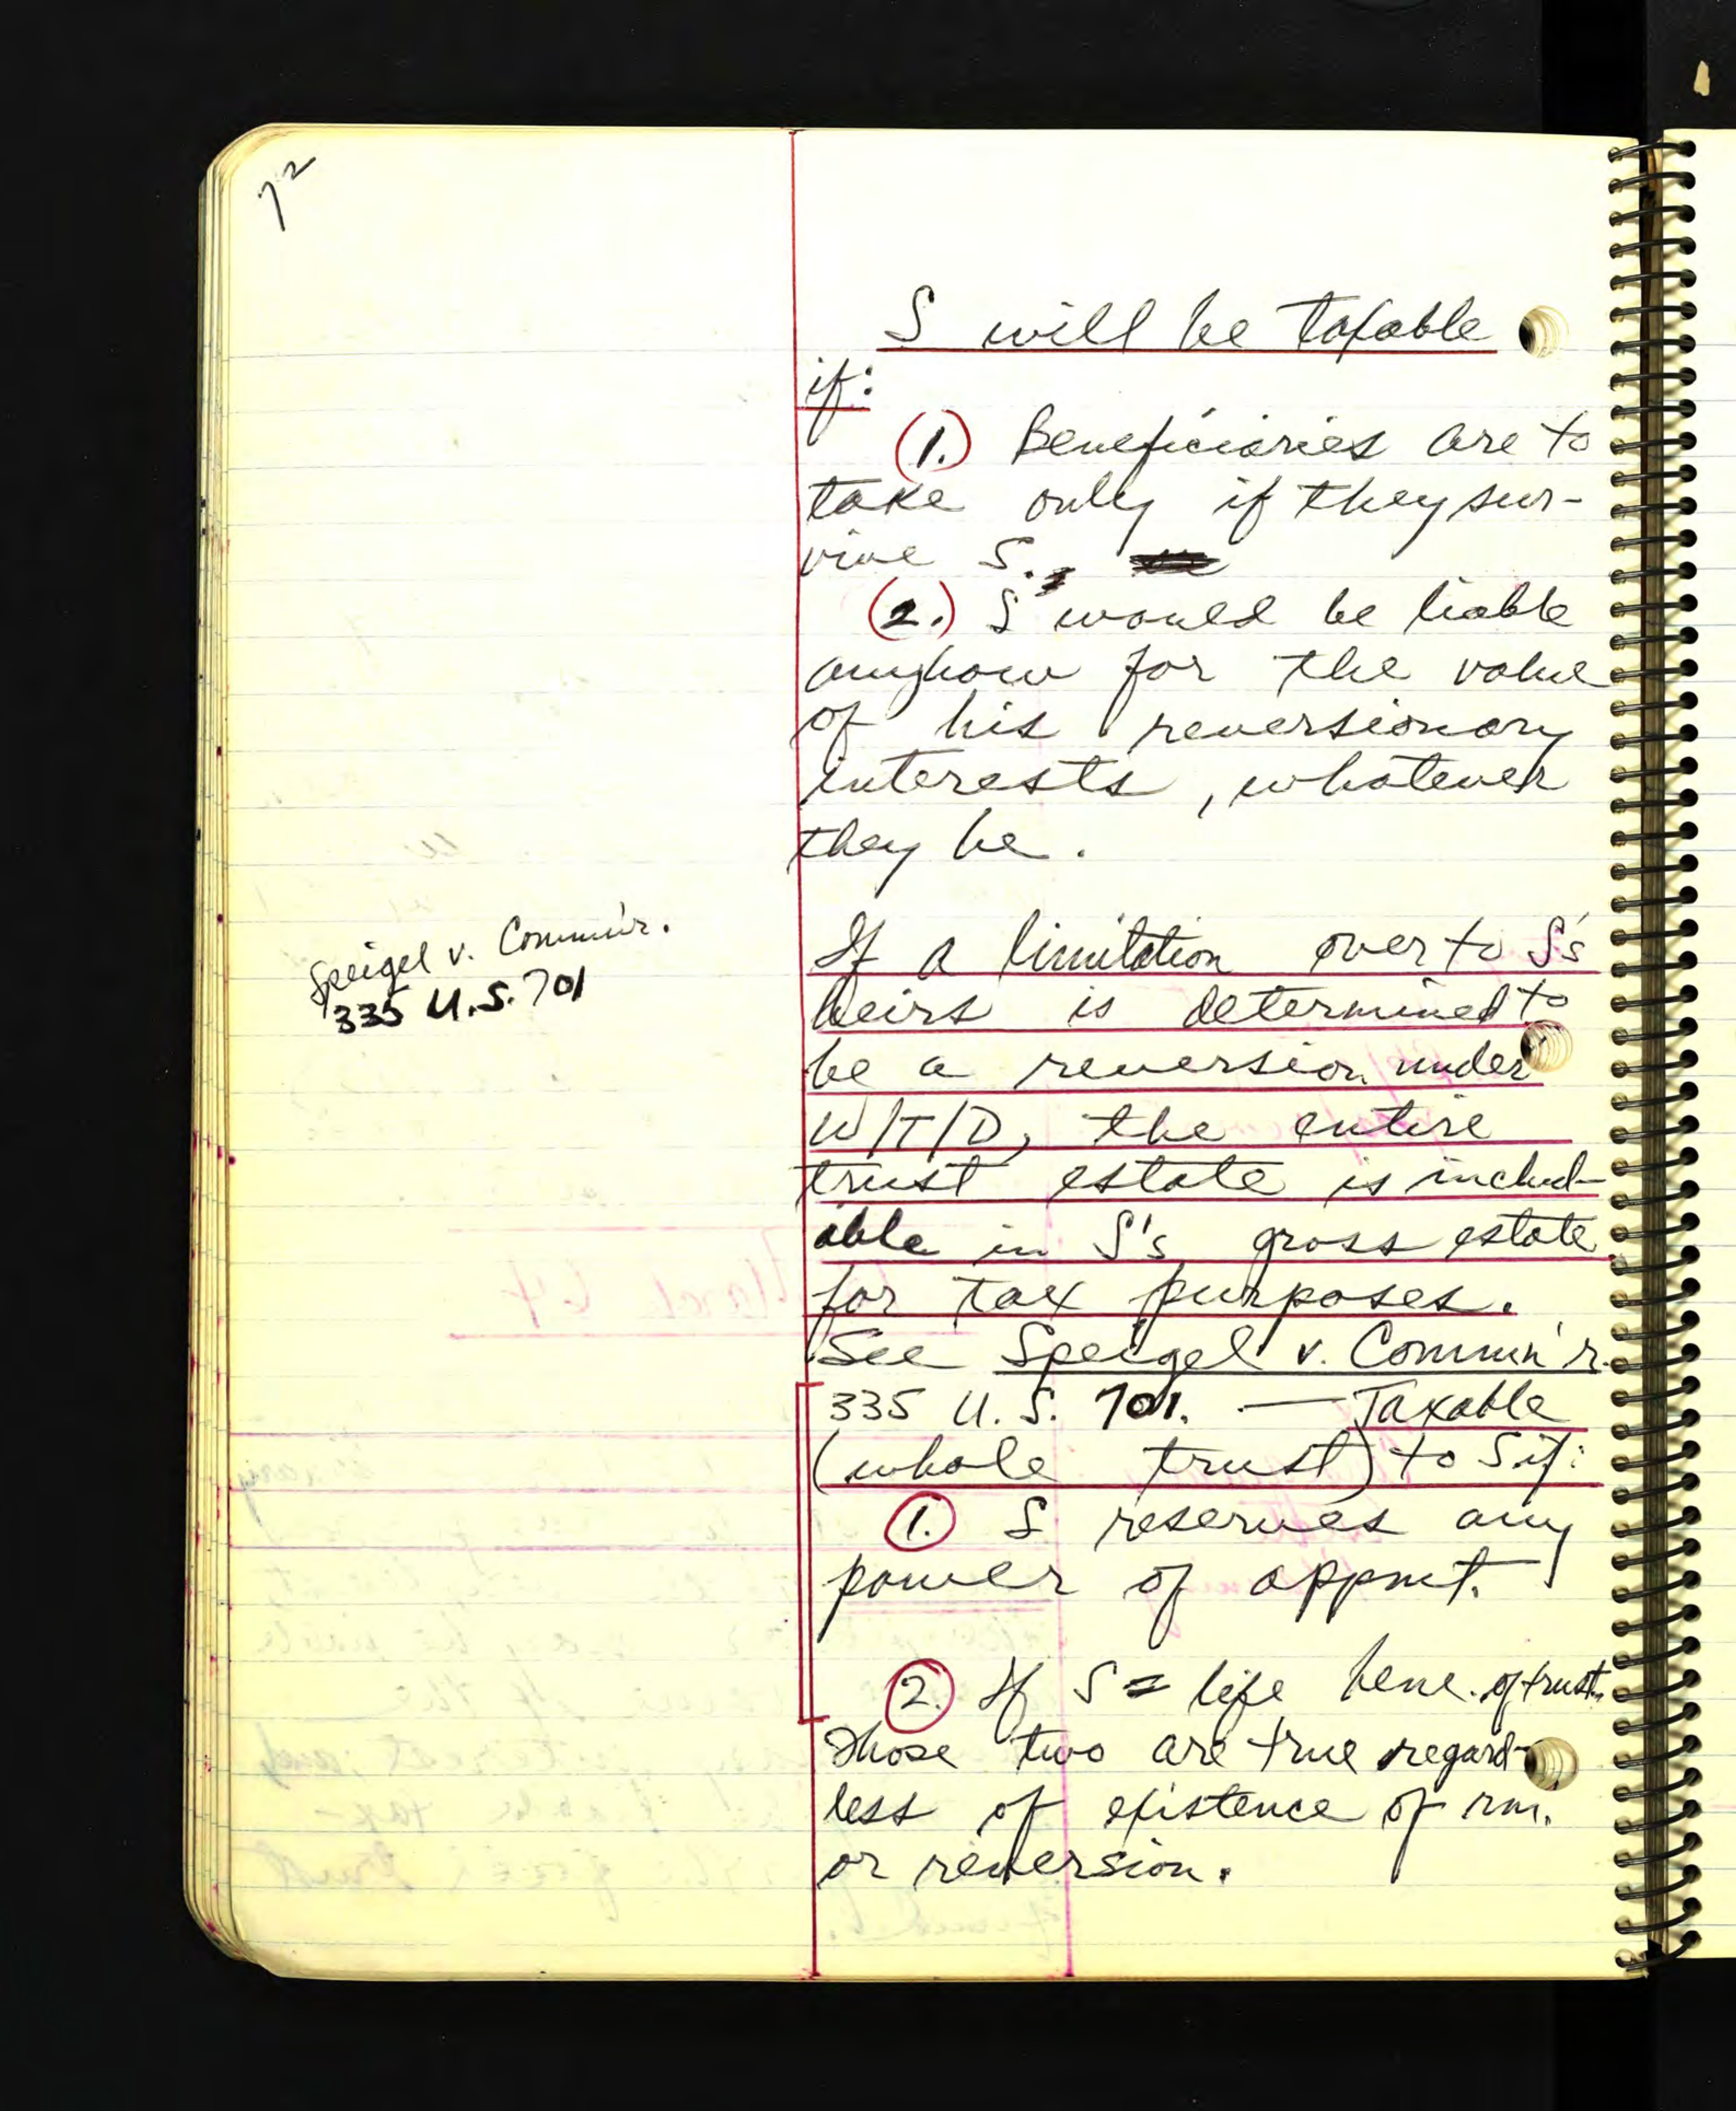 72
S will be taxable
if:
(1.) Beneficiaries are to
take only if they sur-
vive S.,
(2.) S would be liable
anyhow for the value
of his reversionary
interests, whatever
they be.
Speigel v. Comm'n'r.
335 U.S. 701
If a limitation over to S's
heirs is determined to
be a reversion under
W/T/D, the entire
trust estate is includ-
able in S's gross estate
for tax purposes.
See Speigel v. Comm'n'r.
335 U.S. 701. — Taxable
(whole trust) to S if:
1. S reserves any
power of appmt.
2. If S = life bene. of trust.
Those two are true regard-
less of existence of rm.
or reversion.